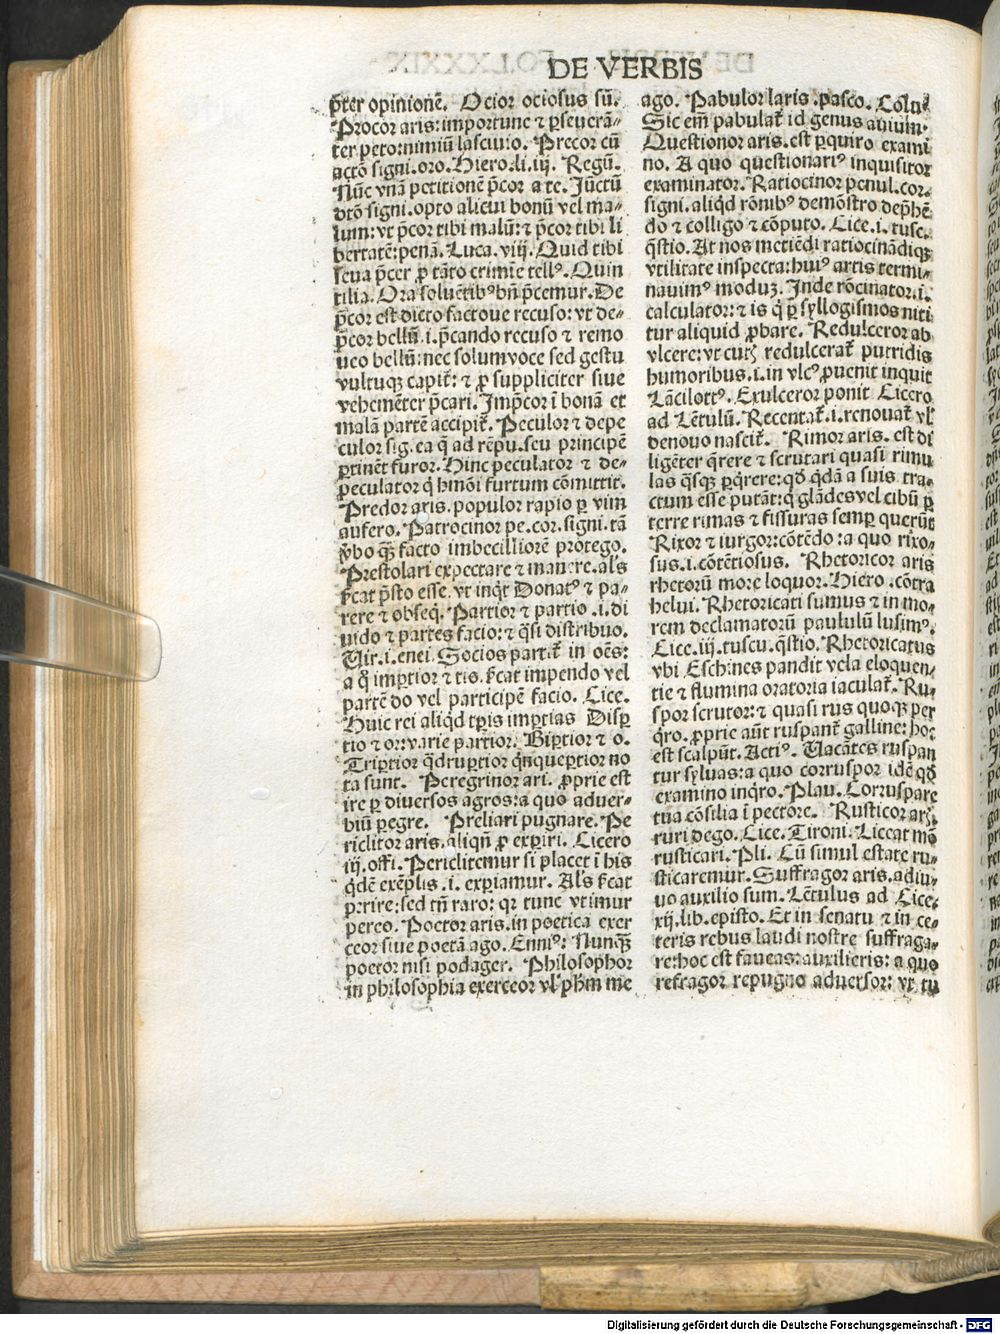 DE VERBIS
p̄ter opinionē. Ocior ociosus sū.
Procor aris: importune ⁊ ꝑseuerā-
ter peto: nimiū lasciuio. Precor cū
actō signi. oro. Hiero. li. iij. Regū.
Nūc vnā petitionē p̄cor a te. Jūctū
dtō signi. opto alicui bonū vel ma-
lum: vt p̄cor tibi malū: ⁊ p̄cor tibi li
bertatē: penā. Luca. viij. Quid tibi
seua p̄cer ꝓ tāto crimīe tellꝰ. Quin
tilia. Ora soluētibꝰ bn̄ p̄cemur. De
p̄cor est dicto factoue recuso: vt de-
p̄cor bellū .i. p̄cando recuso ⁊ remo
ueo bellū: nec solum voce sed gestu
vultuqꝫ capit̄: ⁊ ꝓ suppliciter siue
vehemēter p̄cari. Imp̄cor ī bonā et
malā partē accipit̄. Peculor ⁊ depe
culor sig. ea q̄ ad rēpu. seu principē
ꝑtinēt furor. Hinc peculator ⁊ de-
peculator q̇ hmōi furtum cōmittit.
Predor aris. populor rapio ꝑ vim
aufero. Patrocinor pe. cor. signi. tā
v̄bo qꝫ̄ facto imbecilliorē protego.
Prestolari expectare ⁊ manere. als
s̄cat p̄sto esse. vt inq̇t Donatꝰ ⁊ pa-
rere ⁊ obseq̇. Partior ⁊ partio .i. di
uido ⁊ partes facio: ⁊ q̄si distribuo.
Uir. i. enei. Socios partit̄ in oēs:
a q̇ imꝑtior ⁊ tis. s̄cat impendo vel
partē do vel participē facio. Cice.
Huic rei aliqḋ tꝑis imꝑtias Disꝑ
tio ⁊ or: varie partior. Biꝑtior ⁊ o.
Triꝑtior q̄druꝑtior q̇nqueꝑtior no
ta sunt. Peregrinor ari. ꝓprie est
ire ꝑ diuersos agros: a quo aduer-
biū ꝑegre. Preliari pugnare. Pe
riclitor aris. aliqn̄ ꝓ exꝑiri. Cicero
iij. offi. Periclitemur si placet ī his
q̇dē exēplis .i. exꝑiamur. Als s̄cat
ꝑrire: sed tn̄ raro: qꝛ tunc vtimur
pereo. Poetor aris. in poetica exer
ceor siue poetā ago. Enniꝰ: Nunqꝫ̄
poetor nisi podager. Philosophor
in philosophia exerceor vl̓ ph̄m me
ago. Pabulor laris. pasco. Colu.
Sic em̄ pabulat̄ id genus auium.
Questionor aris. est ꝑquiro exami
no. A quo questionariꝰ inquisitor
examinator. Ratiocinor penul. cor.
signi. aliqḋ rōnibꝰ demōstro dep̄hē
do ⁊ colligo ⁊ cōputo. Cice. i. tusc.
q̄stio. At nos metiēdi ratiocinādiqꝫ
vtilitate inspecta: huiꝰ artis termi-
nauimꝰ modum. Inde rōcinator .i.
calculator: ⁊ is q̇ ꝑ syllogismos niti
tur aliquid ꝓbare. Redulceror ab
vlcere: vt cutis redulcerat̄ putridis
humoribus .i. in vlcꝰ ꝓuenit inquit
Lācilottꝰ. Exulceror ponit Cicero
ad Lētulū. Recentat̄ .i. renouat̄ vl̓
denouo nascit̄. Rimor aris. est di
ligēter q̄rere ⁊ scrutari quasi rimu
las q̄sqꝫ ꝑq̄rere: qd̓ q̄dā a suis tra-
ctum esse putāt: q̇ glādes vel cibū ꝑ
terre rimas ⁊ fissuras semꝑ querūt
Rixor ⁊ iurgor: cōtēdo: a quo rixo-
sus .i. cōtētiosus. Rhetoricor aris
rhetorū more loquor. Hiero. cōtra
helui. Rhetoricati sumus ⁊ in mo-
rem declamatorū paululū lusimꝰ.
Cice. iij. tuscu. q̄stio. Rhetoricatus
vbi Eschines pandit vela eloquen-
tie ⁊ flumina oratoria iaculat̄. Ru-
spor scrutor: ⁊ quasi rus quoqꝫ per
q̄ro. ꝓprie aūt ruspant̄ galline: hoc
est scalpūt. Actiꝰ. Uacātes ruspan
tur syluas: a quo corruspor idē qd̓
examino inq̇ro. Plau. Corruspare
tua cōsilia ī pectore. Rusticor aris
ruri dego. Cice. Tironi. Liceat mō
rusticari. Pli. Cū simul estate ru-
sticaremur. Suffragor aris. adiu-
uo auxilio sum. Lētulus ad Cice.
xij. lib. episto. Et in senatu ⁊ in ce-
teris rebus laudi nostre suffraga-
re: hoc est faueas: auxilieris: a quo
refragor repugno aduersor: vt tu
Digitalisierung gefördert durch die Deutsche Forschungsgemeinschaft - DFG